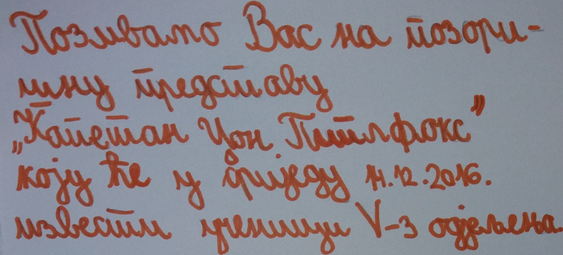 Позивамо Вас на позори-
шну представу
„Капетан Џон Пиплфокс”
коју ће у сриједу 14.12.2016.
извести ученици V-3 одјељења.